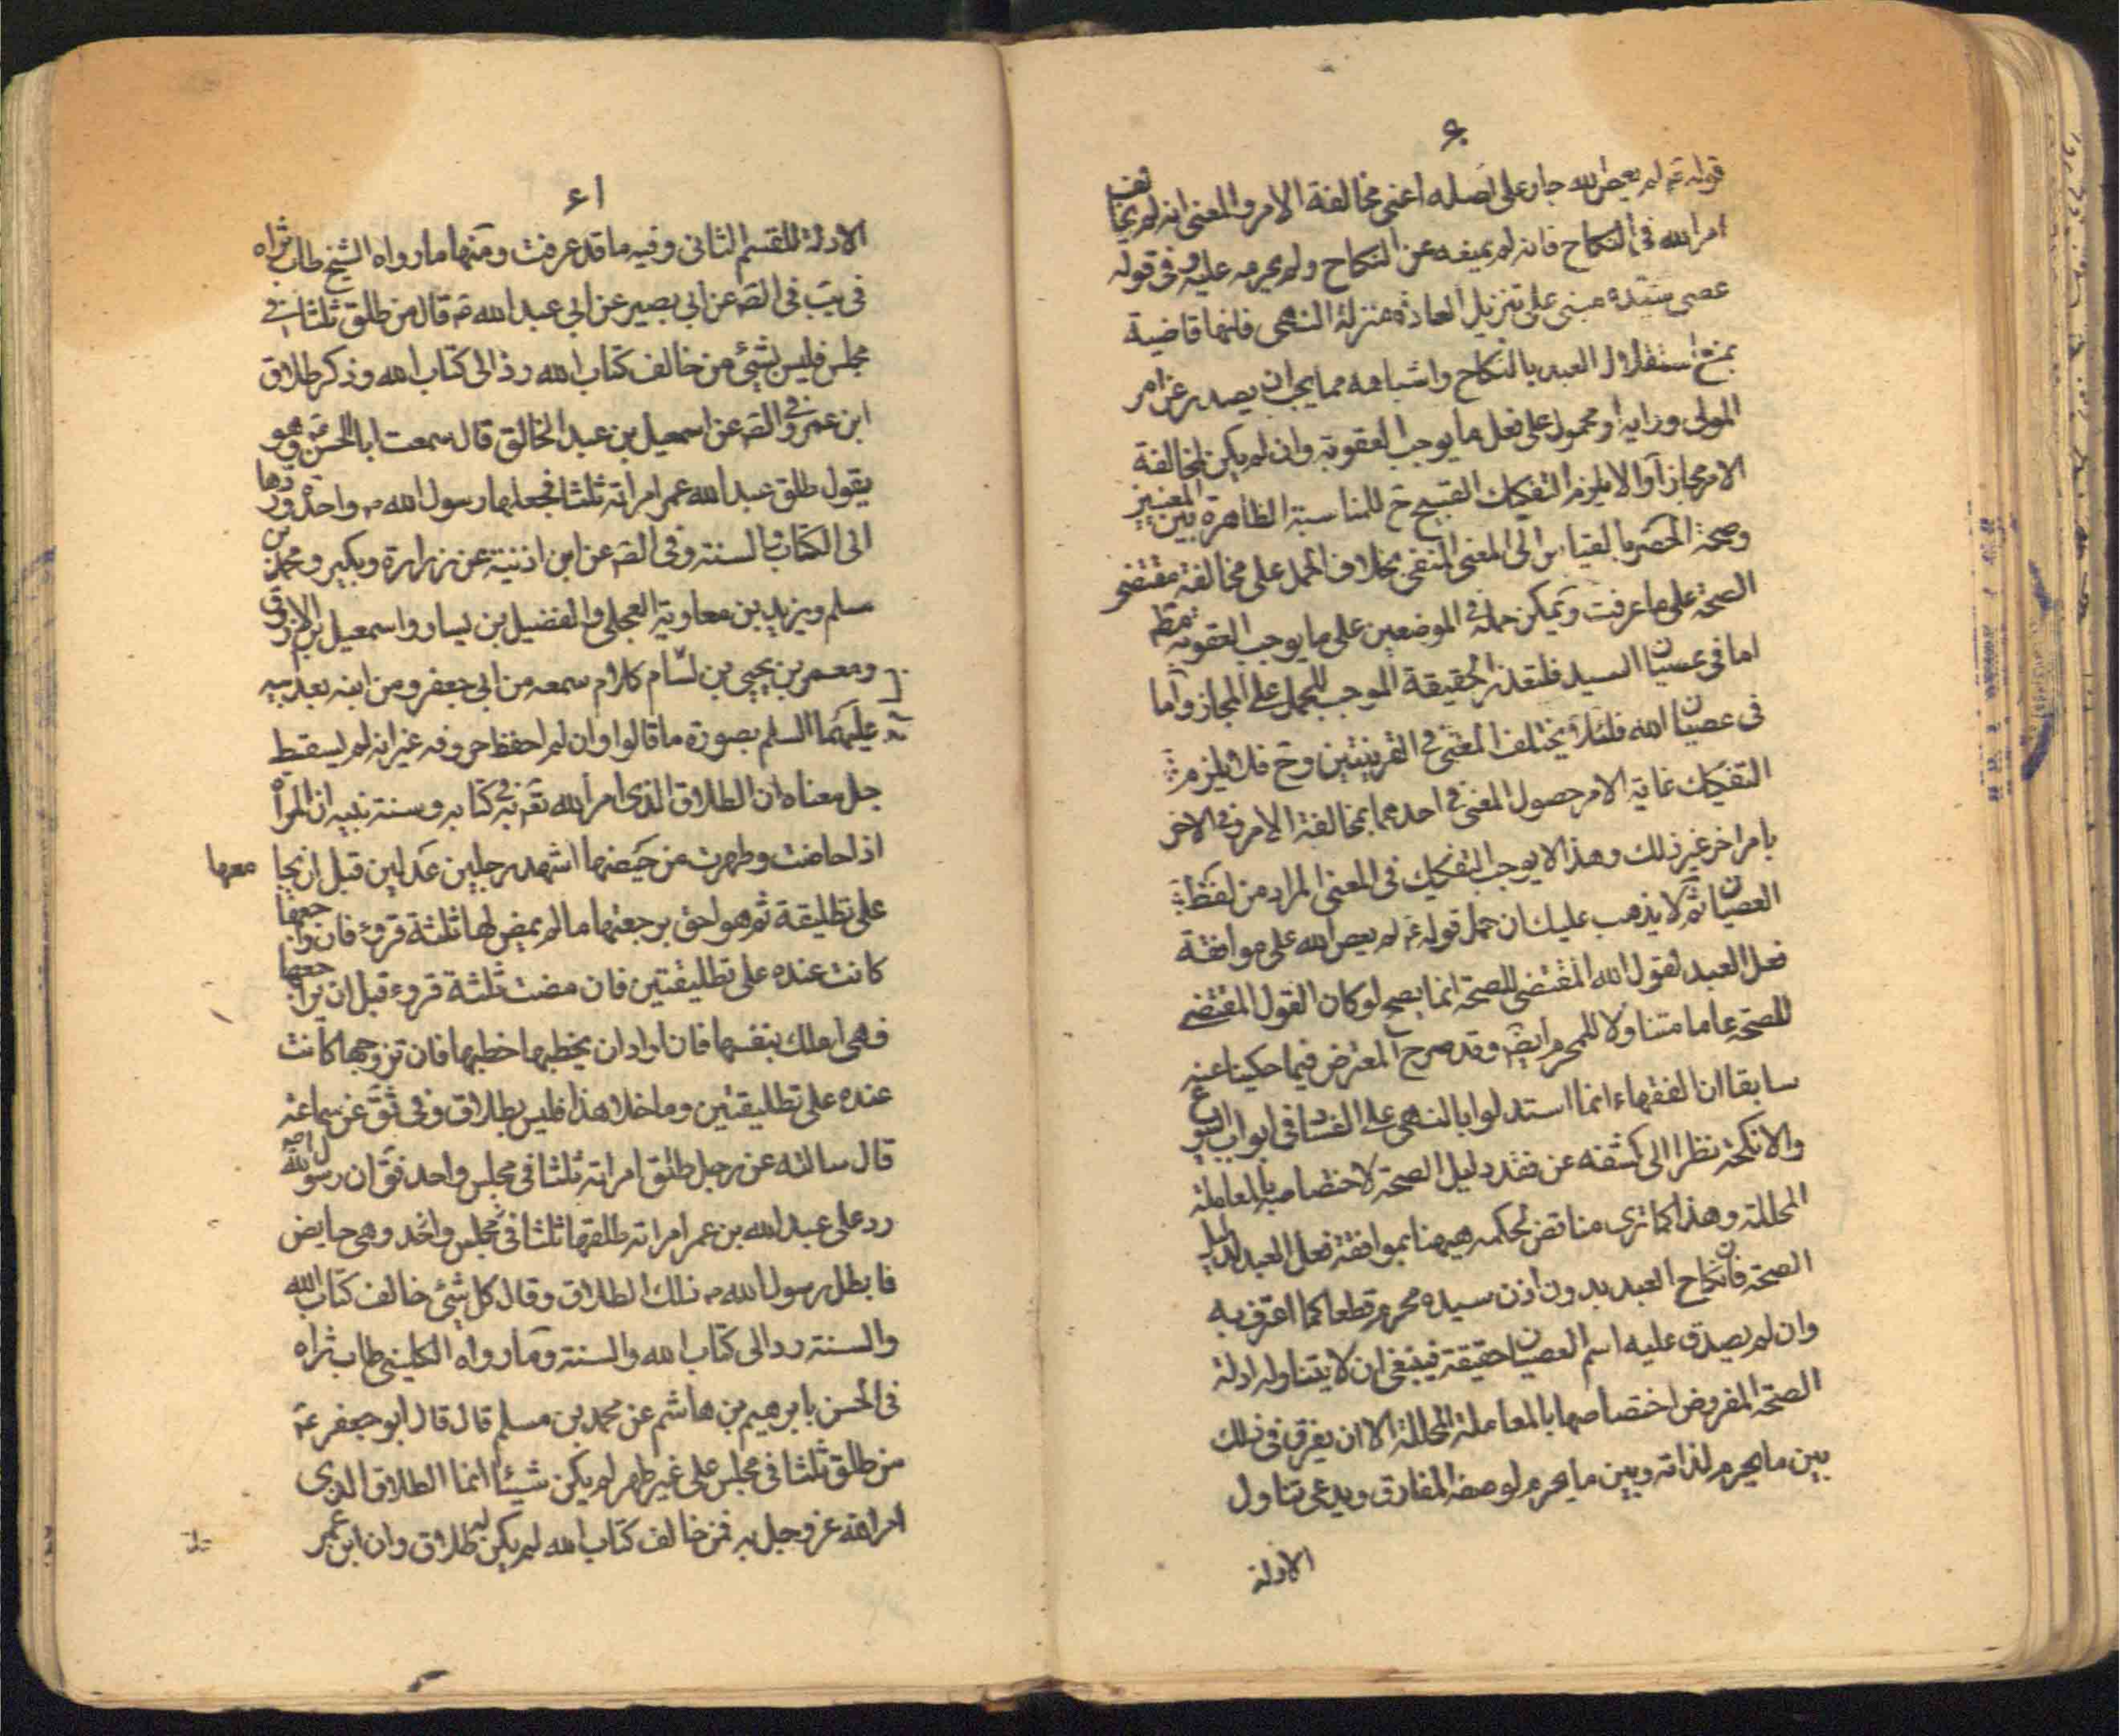 ۶۰
قوله ع لم يعص الله جار على اصله اعنى مخالفة الامر والمعنى انه لم يخالف
امر الله فى النكاح فانه لم يمنعه عن النكاح ولم يحرمه عليه وفى قوله
عصى سيده مبنى على تنزيل العادة منزلة النهى فانها قاضية
بمنع استقلال العبد بالنكاح واشباهه مما يجب ان يصدر عن امر
المولى ورايه او محمول على فعل ما يوجب العقوبة وان لم يكن لمخالفة
الامر مجازا والا يلزم التفكيك القبيح ح للمناسبة الظاهرة بين المعنيين
وصحة الحصر بالقياس الى المعنى المنفى بخلاف الحمل على مخالفة مقتضى
الصحة على ما عرفت ويمكن حمله فى الموضعين على ما يوجب العقوبة مط
اما فى عصيان السيد فلتعذر الحقيقة الموجب للحمل على المجاز واما
فى عصيان الله فلئلا يختلف المعنى فى القرينتين وح فلا يلزم
التفكيك غاية الامر حصول المعنى فى احدهما بمخالفة الامر وفى الاخر
بامر اخر غير ذلك وهذا لا يوجب التفكيك فى المعنى المراد من لفظ
العصيان ثم لا يذهب عليك ان حمل قوله ع لم يعص الله على موافقة
فعل العبد لقول الله المقتضى للصحة انما يصح لو كان القول المقتضى
للصحة عاما متناولا للمحرم ايض وقد صرح المعترض فيما حكينا عنه
سابقا ان الفقهاء انما استدلوا بالنهى على الفساد فى ابواب البيوع
والانكحة نظرا الى كشفه عن فقد دليل الصحة لاختصاصه بالمعاملة
المحللة وهذا كما ترى مناقض لحكمه هيهنا بموافقة فعل العبد لدليل
الصحة فان نكاح العبد بدون اذن سيده محرم قطعا كما اعترف به
وان لم يصدق عليه اسم العصيان حقيقة فينبغى ان لا يتناوله ادلة
الصحة المفروض اختصاصها بالمعاملة المحللة الا ان يفرق فى ذلك
بين ما يحرم لذاته وبين ما يحرم لوصفه المفارق ويدعى تناول
الادلة
۶۱
الادلة للقسم الثانى وفيه ما قد عرفت ومنها ما رواه الشيخ طاب ثراه
فى يب فى الصه عن ابى بصير عن ابى عبد الله ع قال من طلق ثلثا فى
مجلس فليس بشئ من خالف كتاب الله رد الى كتاب الله وذكر طلاق
ابن عمر وفى الصه عن اسمعيل بن عبد الخالق قال سمعت ابا الحسن ع وهو
يقول طلق عبد الله عمر امراته ثلثا فجعلها رسول الله ص واحدة وردها
الى الكتاب والسنة وفى الصه عن ابن اذينة عن زرارة وبكير ومحمد بن
مسلم ويزيد بن معاوية العجلى والفضيل بن يسار واسمعيل الازرق
ومعمر بن يحيى بن بسام كلام سمعه من ابى جعفر ومن ابنه بعد ابيه
عليهما السلم بصورة ما قالوا وان لم احفظ حروفه غير انه لم يسقط
جل معناه ان الطلاق الذى امر الله تع به فى كتابه وسنة نبيه ان المراة
اذا حاضت وطهرت من حيضها اشهد رجلين عدلين قبل ان يجامعها
على تطليقة ثم هو احق برجعتها ما لم يمض لها ثلثة قروء فان راجعها
كانت عنده على تطليقتين فان مضت ثلثة قروء قبل ان يراجعها
فهى املك بنفسها فان اراد ان يخطبها خطبها فان تزوجها كانت
عنده على تطليقتين وما خلا هذا فليس بطلاق وفى ثق عن سماعة
قال سالته عن رجل طلق امراته ثلثا فى مجلس واحد فق ان رسول الله ص
رد على عبد الله بن عمر امراته طلقها ثلثا فى مجلس واحد وهى حايض
فابطل رسول الله ص ذلك الطلاق وقال كل شئ خالف كتاب الله
والسنة رد الى كتاب الله والسنة وما رواه الكلينى طاب ثراه
فى الحسن بابرهيم بن هاشم عن محمد بن مسلم قال قال ابو جعفر ع
من طلق ثلثا فى مجلس على غير طهر لم يكن شيئا انما الطلاق الذى
امر الله عز وجل به فمن خالف كتاب الله لم يكن له طلاق وان ابن عمر